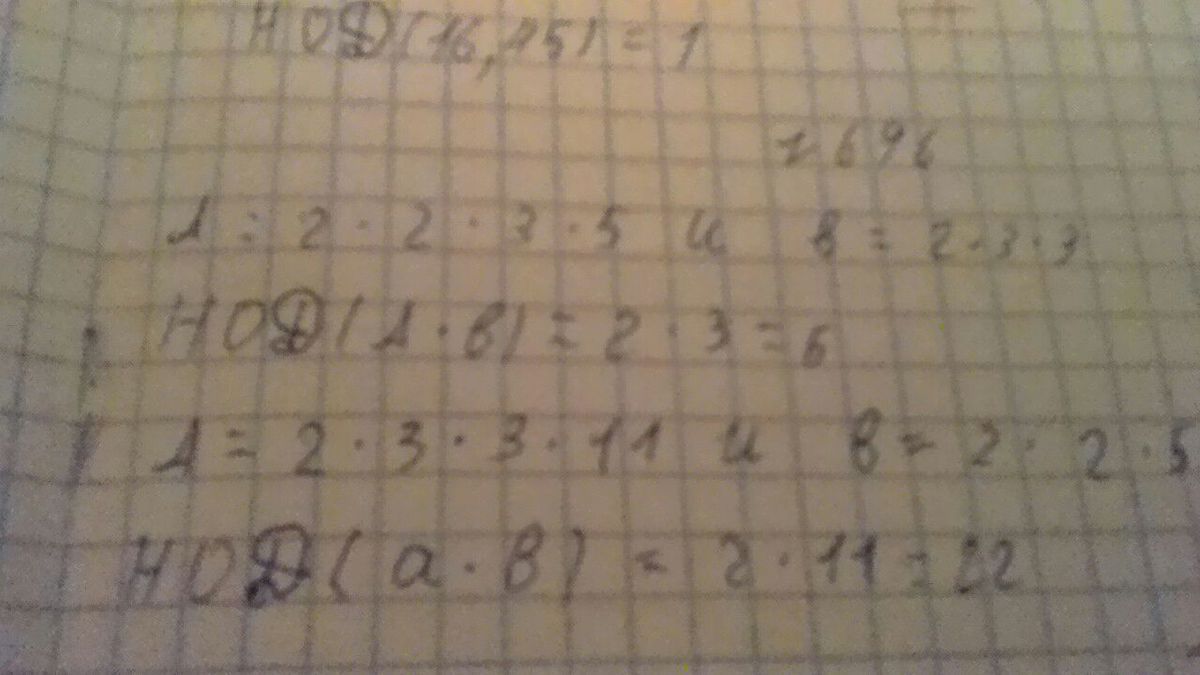 НОД(16,45) = 1
№ 696
A = 2 · 2 · 3 · 5 и B = 2 · 3 · 3
НОД(A · B) = 2 · 3 = 6
A = 2 · 3 · 3 · 11 и B = 2 · 2 · 5
НОД(a · B) = 2 · 11 = 22